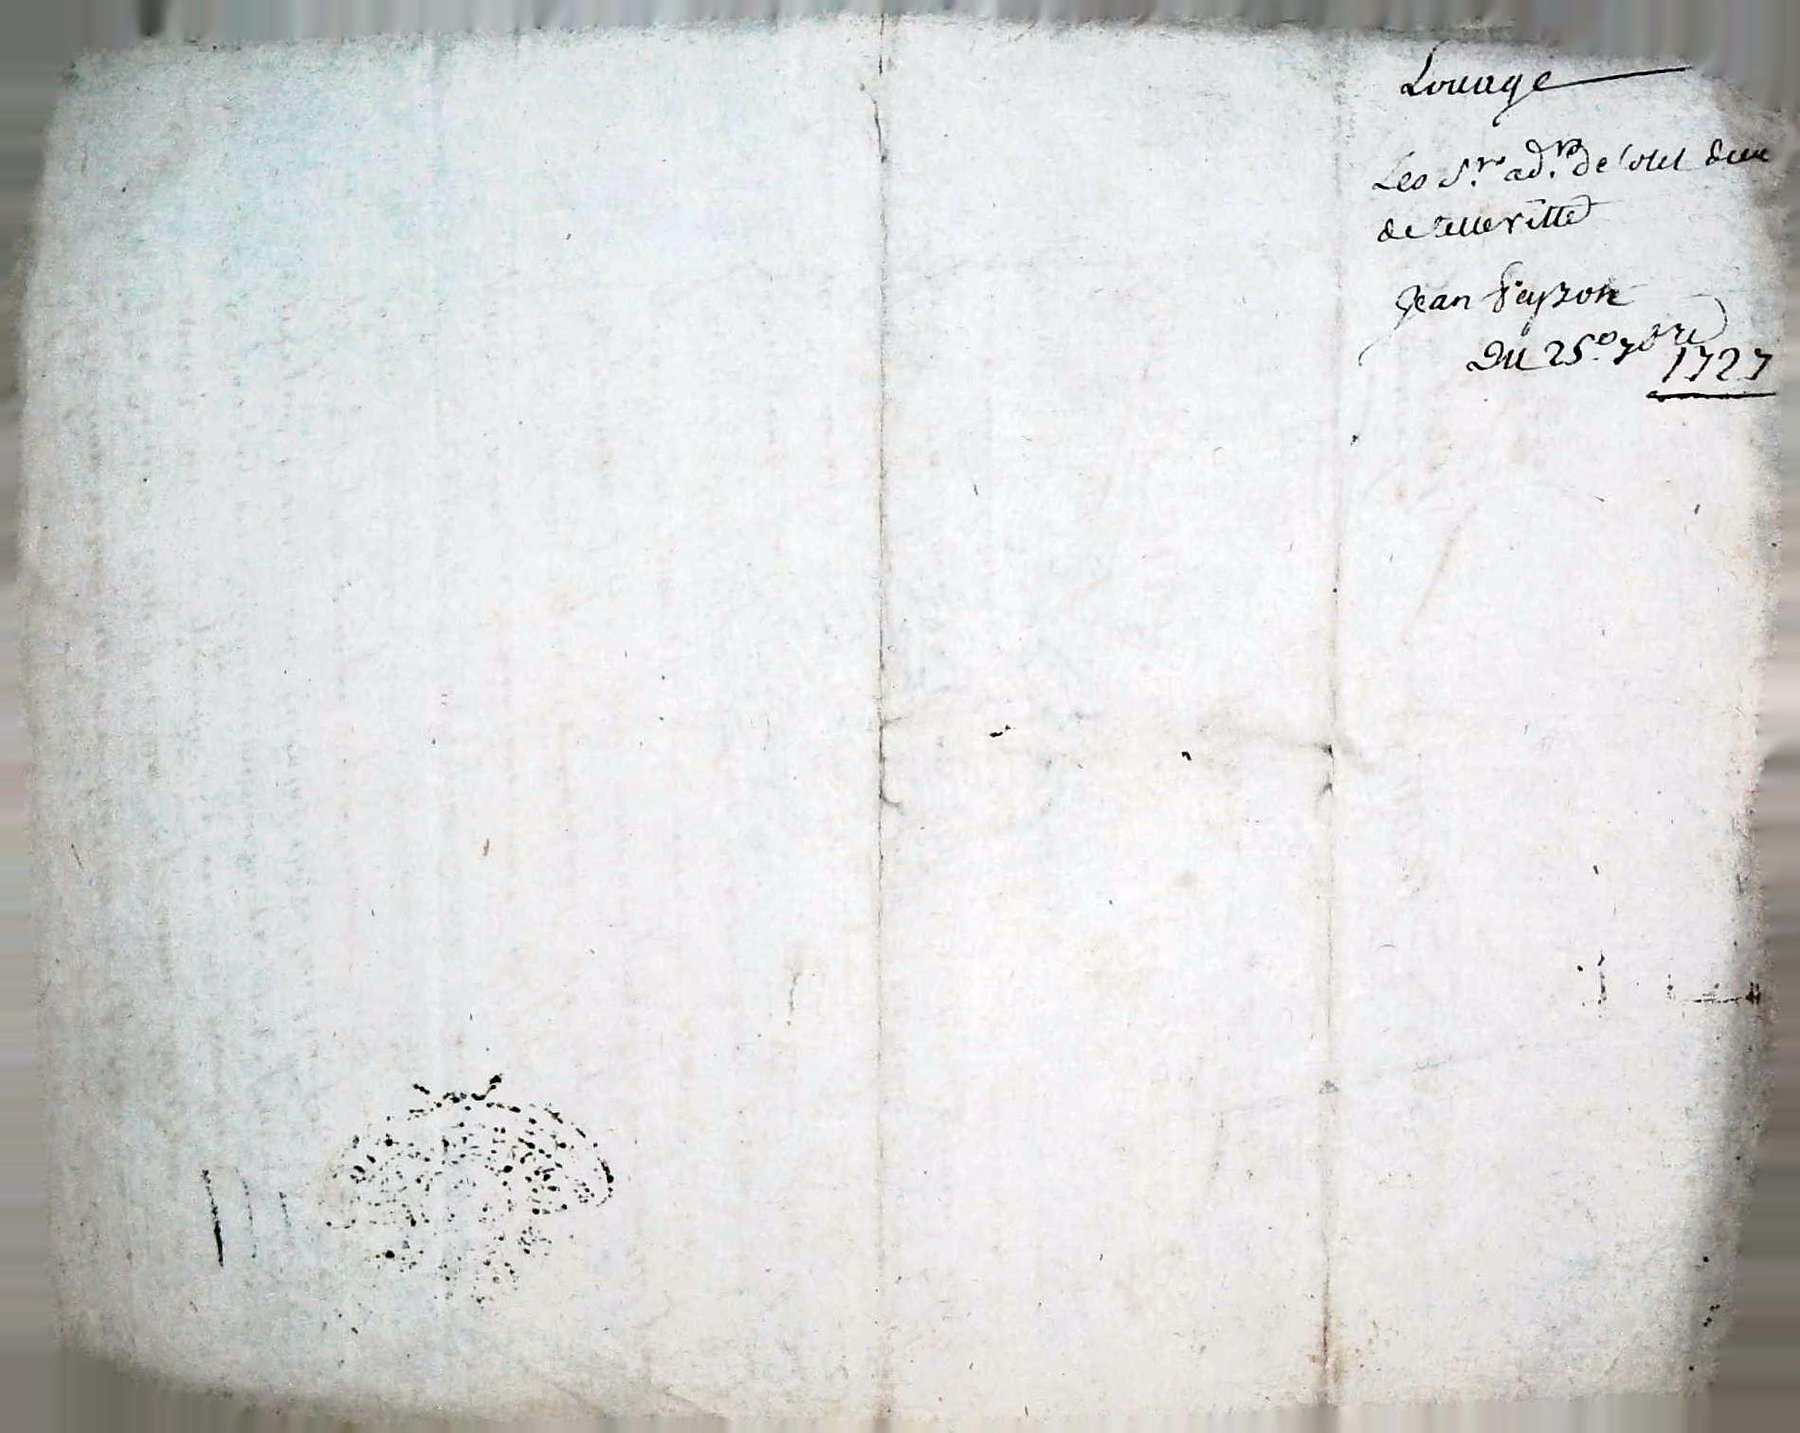 Louage
Les S.rs ad.rs de l'otel dieu
de cette ville
Jean Peyron
Du 25.e 7bre
1727